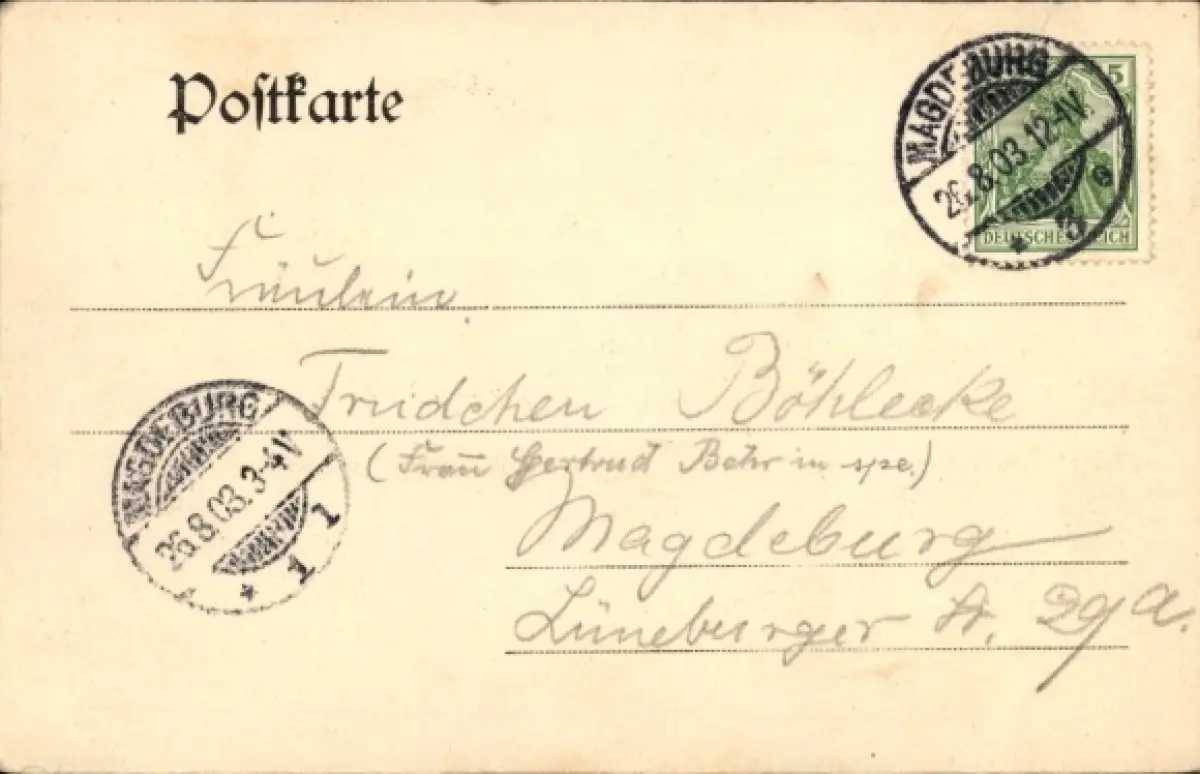 Postkarte
MAGDEBURG
26.8.03.12-1V.
* 3 e
5
DEUTSCHES REICH
Fräulein
Trudchen Böhlecke
(Frau Gertrud Behr in spe.)
Magdeburg
Lüneburger St. 29a.
MAGDEBURG
26.8.03.3-4V
* 1 1